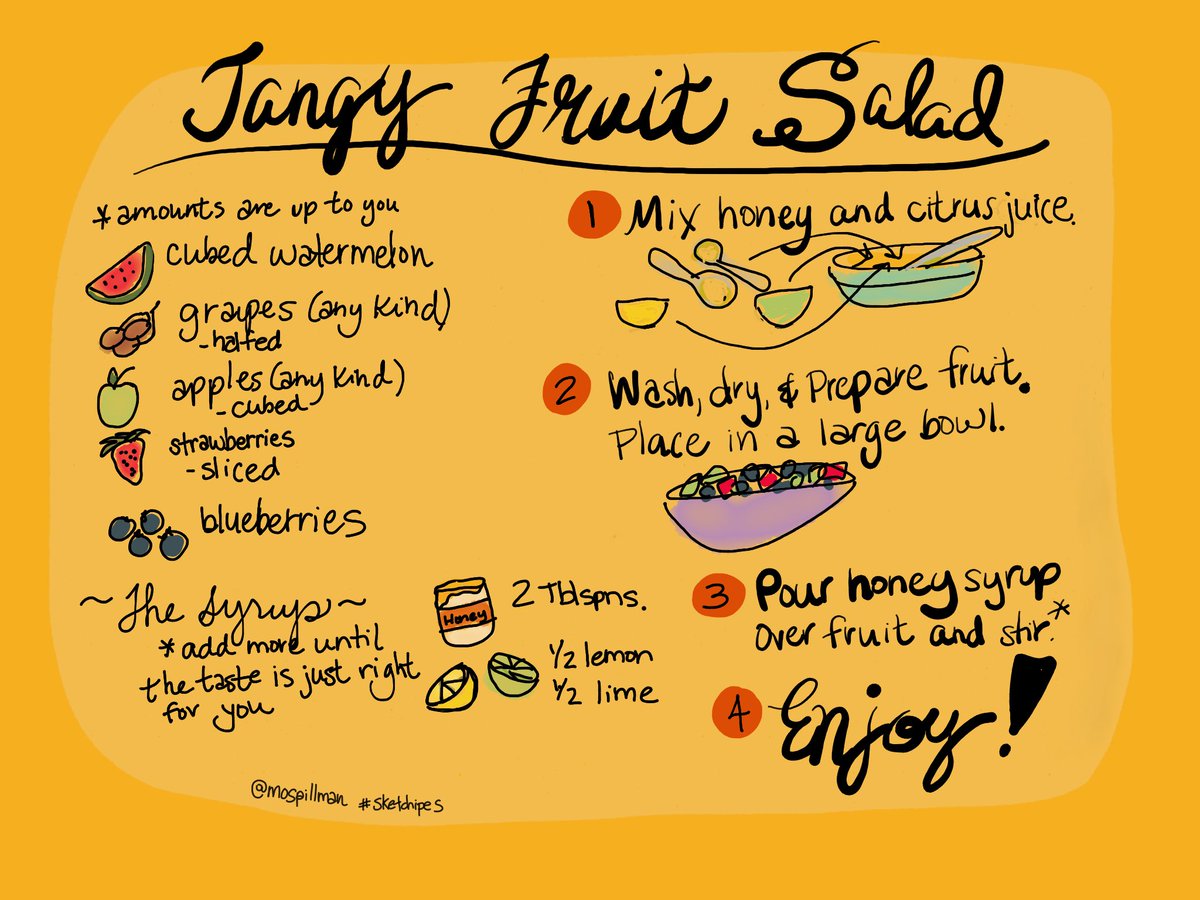 Tangy Fruit Salad
*amounts are up to you
cubed watermelon
grapes (any kind)
-halfed
apples (any kind)
-cubed
strawberries
-sliced
blueberries
~The Syrup~
*add more until
the taste is just right
for you
Honey
2 Tblspns.
1/2 lemon
1/2 lime
@mospillman #sketchipes
1 Mix honey and citrus juice.
2 Wash, dry, & Prepare fruit.
Place in a large bowl.
3 Pour honey syrup
over fruit and stir.*
4 Enjoy!